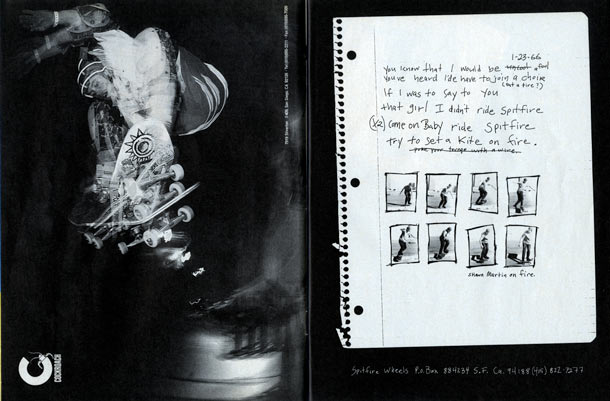 COCKROACH
1-23-66
you know that I would be a fool
you've heard I'de have to join a choire
(not a tire?)
If I was to say to you
that girl I didn't ride Spitfire
(x2) Come on Baby ride Spitfire
try to set a Kite on fire.
shawn Martin on fire.
Spitfire Wheels P.O. Box 884234 S.F. Ca. 94188 (415) 822-7277